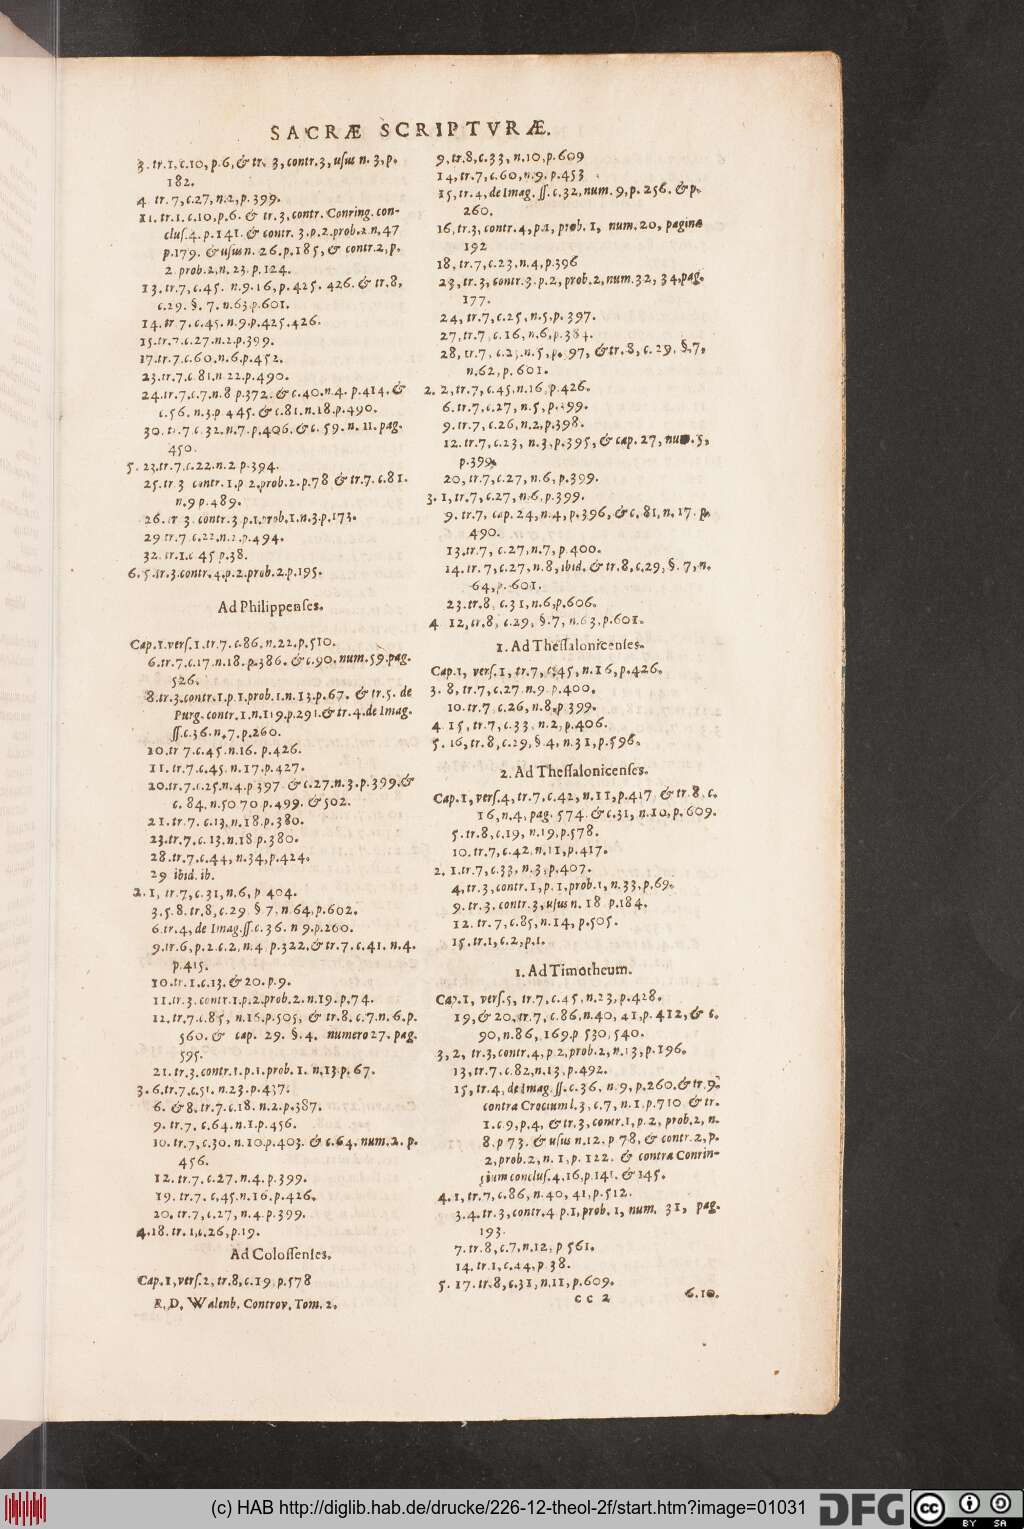 SACRÆ SCRIPTVRÆ.
3. tr.1,c.10, p.6,& tr. 3,contr.3, usus n. 3,p.
182.
4 tr. 7,c.27, n.2,p. 399.
11. tr.1. c.10,p.6. & tr.3,contr. Conring. con-
clus.4. p.141. & contr. 3.p.2.prob.2.n,47
p.179. & usus n. 26.p.185,& contr.2,p.
2 prob.2,n. 23. p.124.
13. tr.7,c.45. n.9.16,p. 425. 426. & tr.8,
c.29. §. 7. n.63.p.601.
14. tr 7.c.45. n.9.p.425.426.
15.tr.7.c.27.n.2.p.399.
17.tr.7.c.60.n.6.p.452.
23.tr.7.c.81.n 22.p.490.
24.tr.7.c.7.n.8 p.372. & c.40.n.4. p.414. &
c.56. n.3.p 445. & c.81. n.18.p.490.
30. tr.7 c. 32. n.7. p.406. & c. 59. n. 11. pag.
450.
5. 23.tr.7.c.22.n.2 p.394.
25.tr 3 contr.1.p 2.prob.2.p.78 & tr.7. c.81.
n.9 p.489.
26. tr 3. contr.3 p.1.prob.1.n.3.p.173.
29 tr.7 c.22.n.2.p.494.
32. tr.1.c 45 p.38.
6. 5.tr.3.contr.4.p.2.prob.2.p.195.
Ad Philippenses.
Cap.1.vers.1.tr.7.c.86.n.22.p.510.
6.tr.7.c.17.n.18.p.386. & c.90. num.59.pag.
526.
8.tr.3.contr.1.p 1.prob.1.n.13.p.67. & tr.5. de
Purg.contr.1.n.119.p.291.& tr.4.de Imag.
ss.c.36.n.7.p.260.
10.tr 7.c.45.n.16. p.426.
11. tr.7.c.45. n.17.p.427.
20.tr.7.c.25.n.4.p 397. & c.27.n.3.p.399.&
c. 84. n.50 70 p.499. & 502.
21. tr.7. c.13.n.18.p.380.
23.tr.7.c.13.n.18 p.380.
28.tr.7.c.44, n.34,p.424.
29 ibid.ib.
2. 1, tr.7,c.31,n.6, p 404.
3.5.8. tr.8,c.29. § 7. n.64.p.602.
6.tr.4,de Imag.ss.c.36. n 9.p.260.
9.tr.6, p.2.c.2, n.4 p.322.& tr.7. c.41. n.4.
p.415.
10.tr.1.c.13. & 20.p.9.
11.tr.3.contr.1.p.2.prob.2.n.19.p.74.
12.tr.7.c.85, n.16.p.505, & tr.8. c.7.n.6.p.
560. & cap. 29. §.4. numero 27. pag.
595.
21.tr.3.contr.1.p.1.prob.1. n,13.p.67.
3. 6.tr.7.c.51. n.23.p.437.
6. & 8. tr.7.c.18. n.2.p.387.
9. tr.7. c.64.n.1.p.456.
10. tr.7,c.30. n.10.p.403. & c.64. num.2. p.
456.
12. tr.7.c.27.n.4.p.399.
19. tr.7. c,45.n.16.p.426.
20. tr.7,c.27, n.4.p.399.
4.18. tr. 1,c.26,p.19.
Ad Colossenses.
Cap.1,vers.2,tr.8,c.19.p.578
R.D. Walenb. Controv. Tom. 2.
9, tr.8,c.33, n.10,p.609
14,tr.7,c.60,n.9. p.453
15,tr.4,de Imag. ss.c.32,num. 9,p. 256. & p.
260.
16,tr.3,contr.4,p.1, prob. 1, num.20, paginæ
192
18, tr.7,c.23,n.4,p.396
23,tr.3,contr.3.p.2,prob.2,num.32, 34,pag.
177.
24, tr.7,c.25,n.5,p. 397.
27,tr.7,c.16,n.6,p.384.
28, tr.7, c.25.n.5,p. 97, & tr.8, c.29. §.7,
n.62,p.601.
2. 2, tr.7, c.45,n.16,p.426.
6. tr.7,c.27, n.5,p.399.
9. tr.7, c.26, n.2,p.398.
12. tr.7,c.23, n.3,p.395,& cap. 27, num.5,
p.399.
20, tr.7,c.27,n.6, p.399.
3. 1, tr.7,c.27,n.6,p.399.
9. tr.7. cap. 24,n.4,p.396,& c. 81,n. 17. p.
490.
13.tr.7, c.27,n.7,p.400.
14. tr.7,c.27,n.8,ibid. & tr.8,c.29, §.7,n.
64,p.601.
23. tr.8, c.31,n.6,p.606.
4 12,tr.8, c.29, §.7, n.63,p.601.
1. Ad Thessalonicenses.
Cap.1, vers.1, tr.7, c.45,n.16,p.426.
3. 8, tr.7,c.27.n.9.p.400.
10. tr.7.c.26, n.8,p.399.
4 15, tr.7, c.33, n.2,p.406.
5. 16,tr.8,c.29, § 4, n.31,p.596.
2. Ad Thessalonicenses.
Cap.1, vers.4, tr.7,c.42, n.11,p.417 & tr.8, c.
16,n.4, pag. 574. & c.31, n.10,p.609.
5. tr.8,c.19, n.19,p.578.
10. tr.7,c.42.n.11,p.417.
2. 1. tr.7,c.33, n.3,p.407.
4, tr.3,contr.1,p.1,prob.1,n.33,p.69.
9. tr.3. contr.3,usus n. 18 p.184.
12. tr.7,c.85,n.14,p.505.
15. tr.1,c.2,p.1.
1. Ad Timotheum.
Cap.1, vers.5, tr.7,c.45,n.23,p.428.
19,& 20, tr.7, c.86,n.40, 41,p.412,& c.
90,n.86, 169.p 530,540.
3, 2, tr.3,contr.4,p 2,prob.2,n.13,p.196.
13,tr.7,c.82,n.13,p.492.
15, tr.4, de Imag. ss.c.36, n.9, p.260.& tr.9.
contra Crocium l.3,c.7, n.1.p.710 & tr.
1.c 9,p.4, & tr.3,contr.1,p.2, prob.2,n.
8,p 73. & usus n.12. p 78,& contr.2,p.
2,prob.2,n. 1,p. 122. & contra Conrin-
gium conclus.4,16,p.141. & 145.
4. 1, tr.7,c.86, n.40, 41,p.512.
3.4. tr.3,contr.4 p.1,prob. 1, num. 31, pag.
193.
7. tr.8,c.7,n.12, p 561.
14. tr.1,c.44,p.38.
5. 17. tr.8,c.31,n.11,p.609.
cc 2
6.10.
(c) HAB http://diglib.hab.de/drucke/226-12-theol-2f/start.htm?image=01031
DFG
cc
BY SA